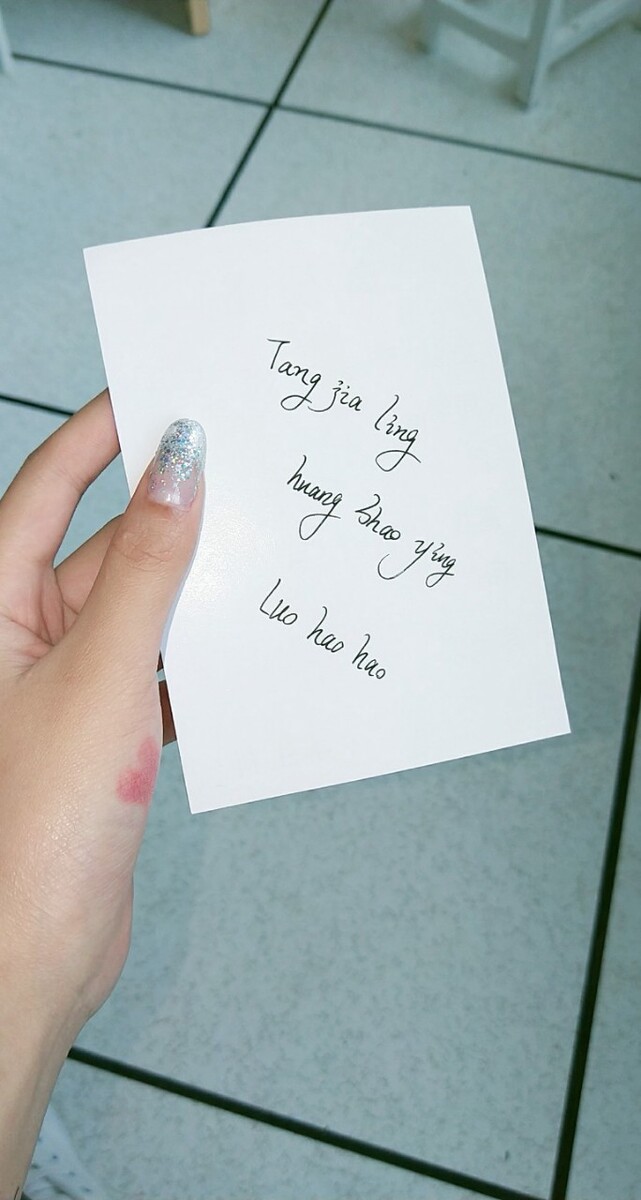 Tang jia ling
huang shao ying
Luo hao hao